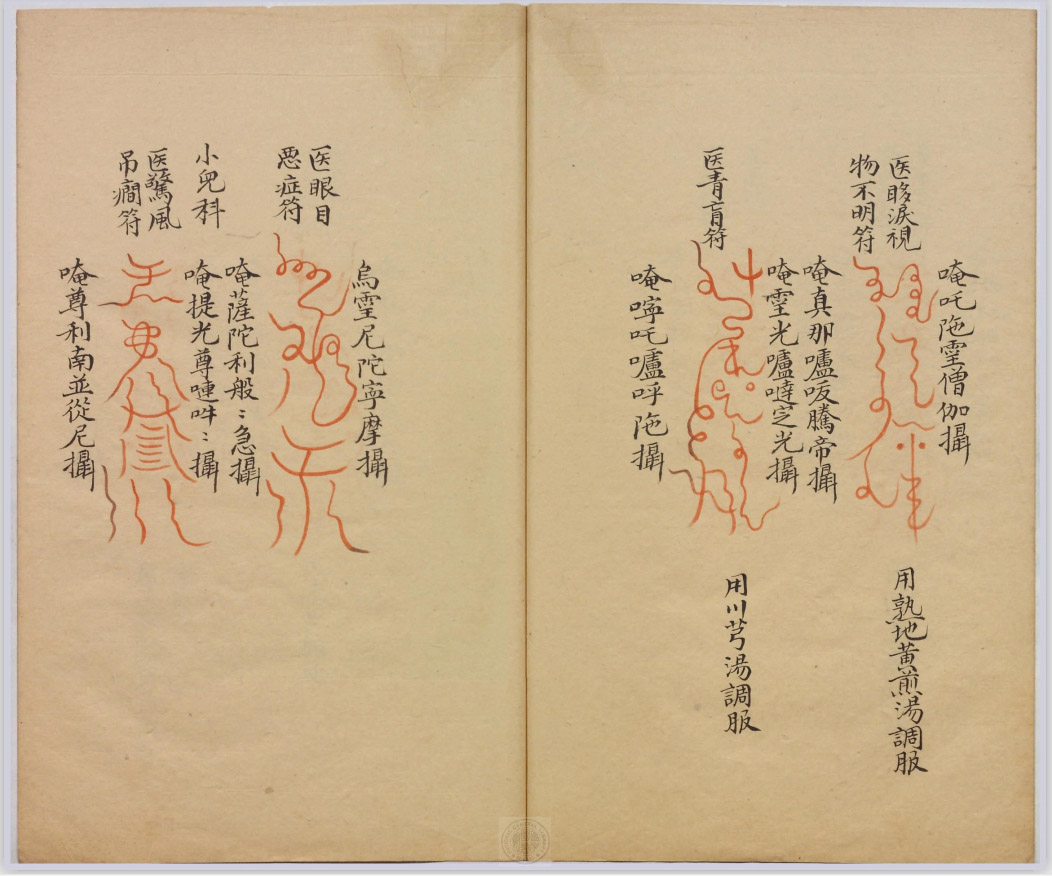 唵吒陁霊僧伽攝
医眵淚視
物不明符
用熟地黄煎湯調服
唵真那嚧叐騰帝攝
唵霊光嚧噠芝光攝
医青盲符
用川芎湯調服
唵嚀吒嚧呼陁攝
烏霊尼陀寧摩攝
医眼目
恶症符
唵薩陀利般〻急攝
小兒科
唵提光尊嗹吽〻攝
医驚風
吊癎符
唵尊利南並從尼攝